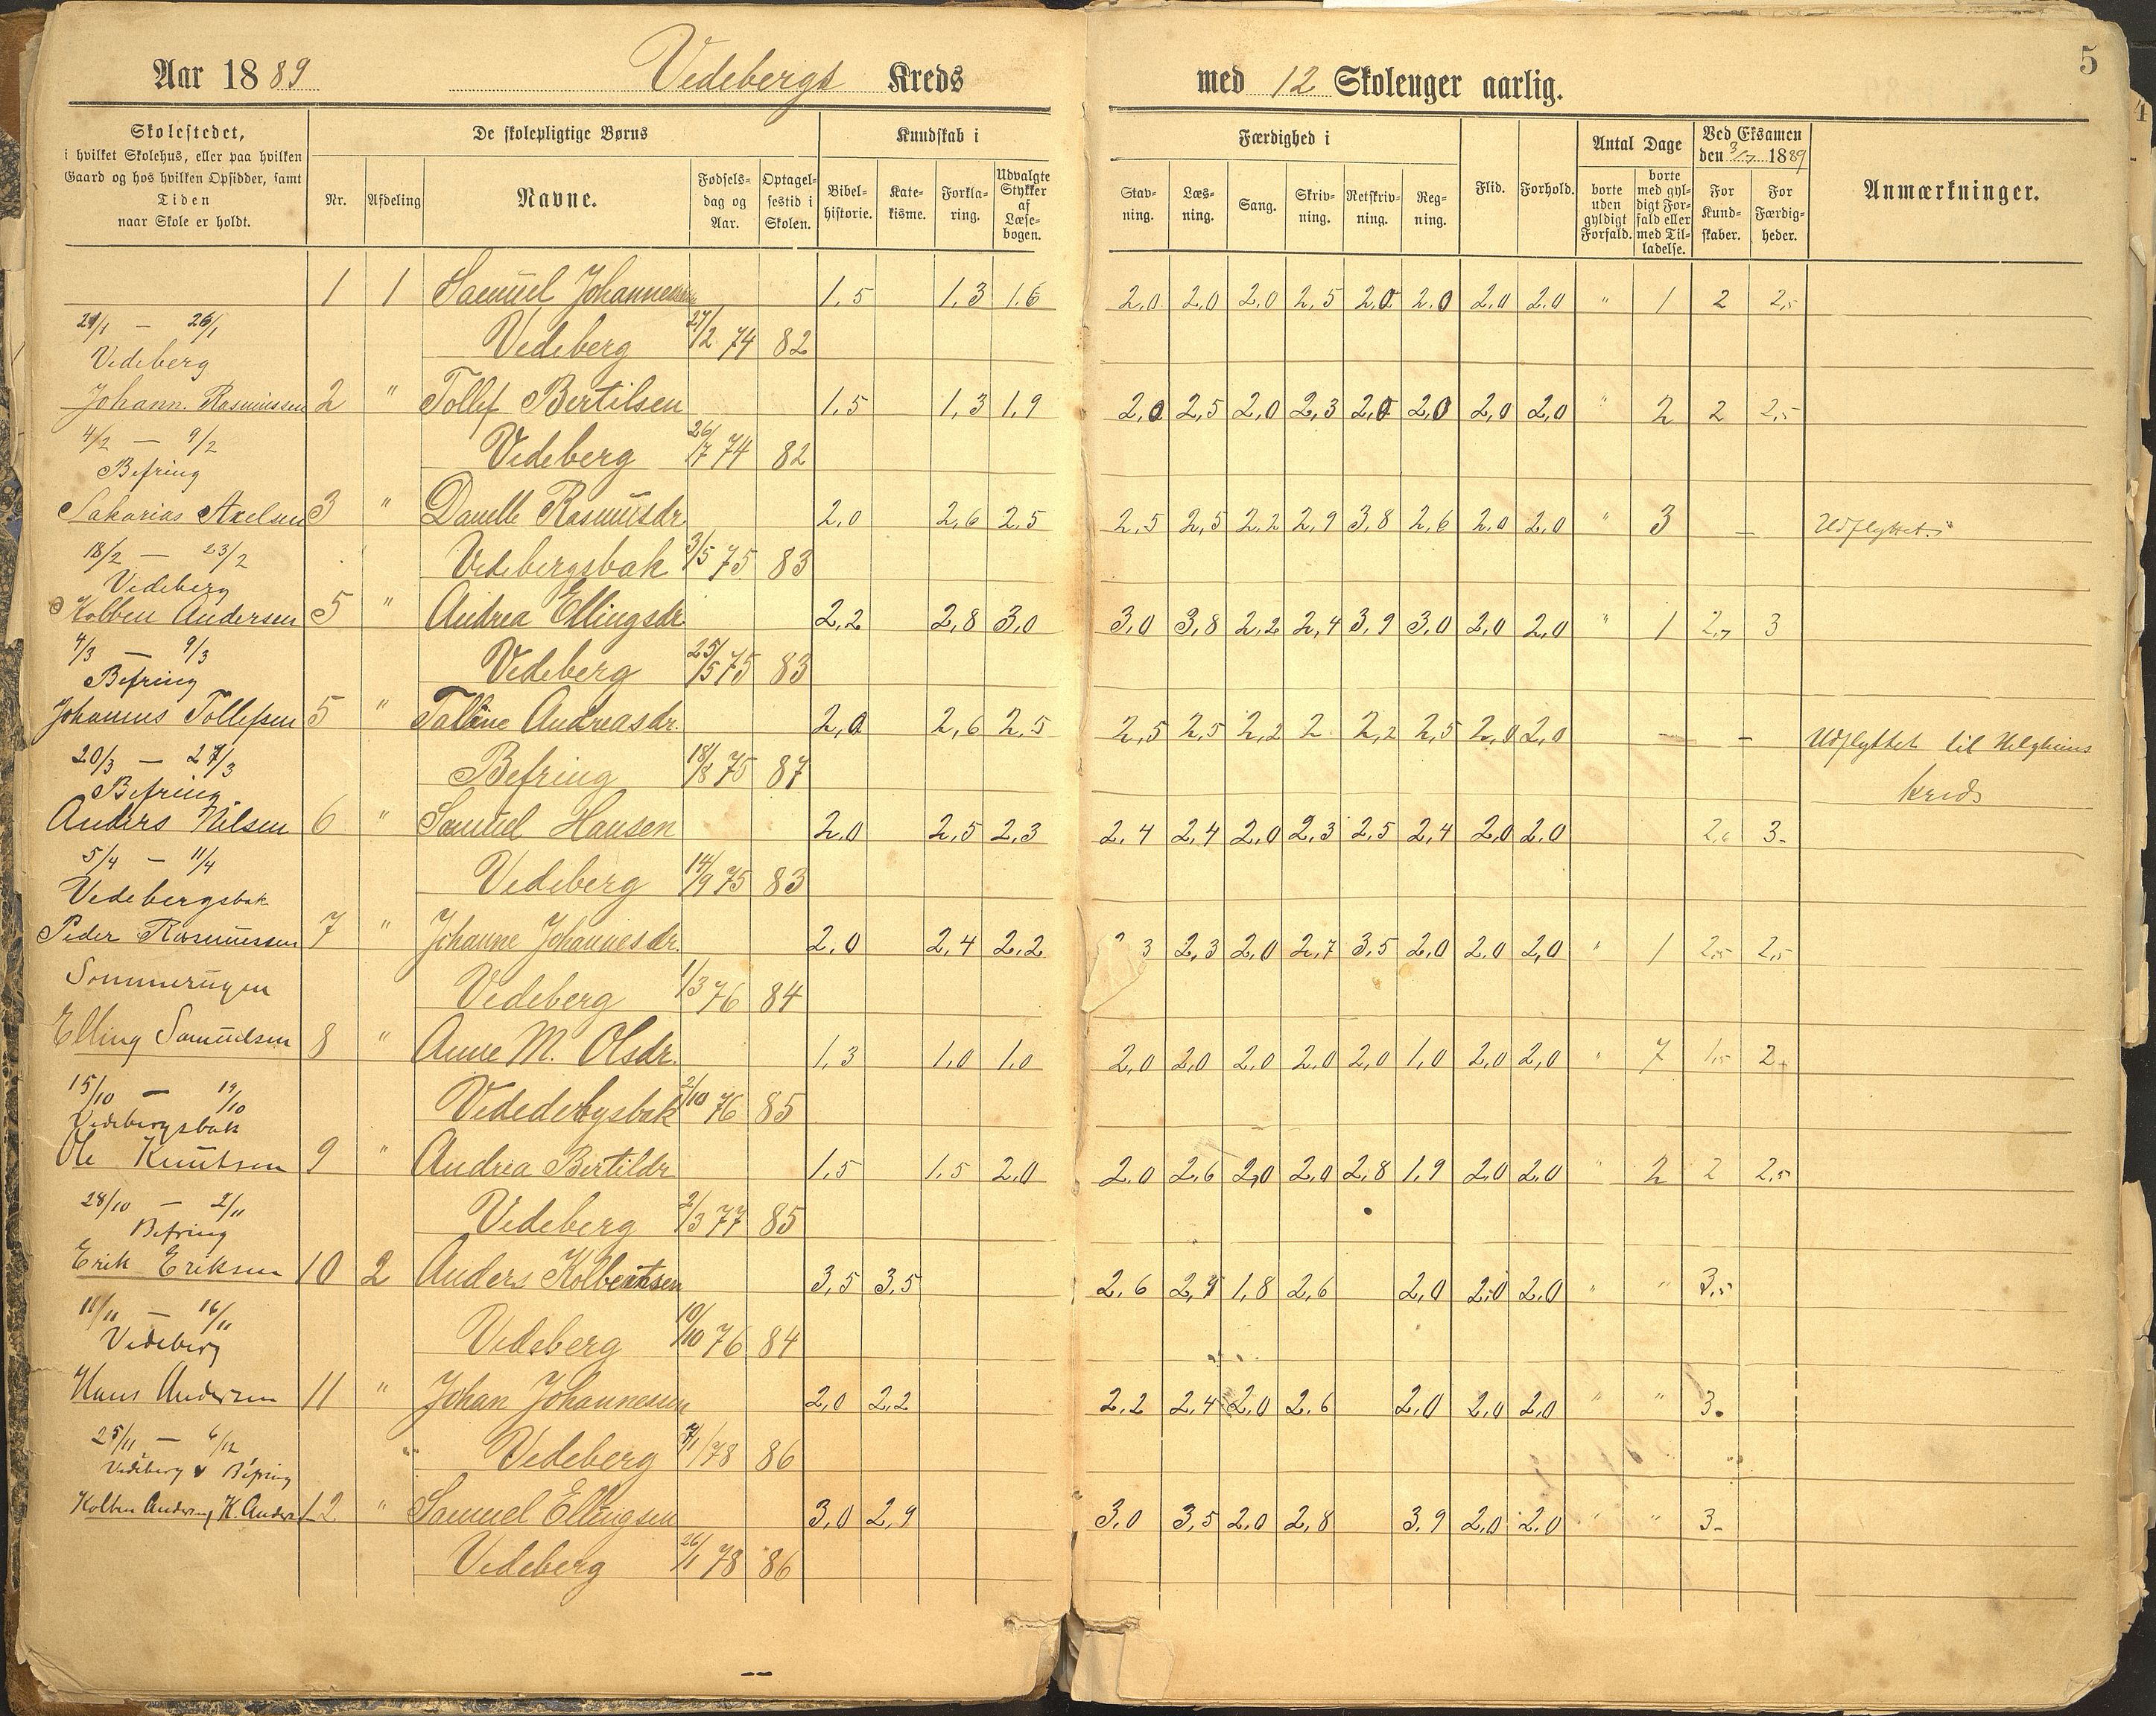 Aar 1889 Vedebergs Kreds med 12 Skoleuger aarlig. 5
Skolestedet,
i hvilket Skolehus, eller paa hvilken
Gaard og hos hvilken Opsidder, samt
Tiden
naar Skole er holdt.
De skolepligtige Børns
Nr. Afdeling Navne. Fødsels-dag og Aar. Optagel-sestid i Skolen.
Kundskab i
Bibel-historie. Kate-kisme. Forkla-ring. Udvalgte Stykker af Læse-bogen.
Færdighed i
Stav-ning. Læs-ning. Sang. Skriv-ning. Retskriv-ning. Reg-ning. Flid. Forhold.
Antal Dage
borte uden gyldigt Forfald. borte med gyl-digt For-fald eller med Til-ladelse.
Ved Eksamen
den 3/7 1889
For Kund-skaber. For Færdig-heder.
Anmærkninger.
1 1 Samuel Johannessen 1,5 1,3 1,6 2,0 2,0 2,0 2,5 2,0 2,0 2,0 2,0 " 1 2 2,5
21/1 — 26/1
Vedeberg 27/2 74 82
Vedeberg
Johann. Rasmussen 2 " Tollef Bertilsen 1,5 1,3 1,9 2,0 2,5 2,0 2,3 2,0 2,0 2,0 2,0 " 2 2 2,5
4/2 — 9/2
Vedeberg 26/7 74 82
Befring
Sakarias Axelsen 3 " Danelle Rasmusdr. 2,0 2,6 2,5 2,5 2,5 2,2 2,9 3,8 2,6 2,0 2,0 " 3 — Udflyttet.
18/2 — 23/2
Vedebergsbak 3/5 75 83
Vedeberg
Kolben Andersen 5 " Andrea Ellingsdr. 2,2 2,8 3,0 3,0 3,8 2,2 2,4 3,9 3,0 2,0 2,0 " 1 2,7 3
4/3 — 9/3
Vedeberg 25/5 75 83
Befring
Johannes Tollefsen 5 " Taline Andreasdr. 2,0 2,6 2,5 2,5 2,5 2,2 2 2,2 2,5 2,0 2,0 — — Udflyttet til Helgheims
20/3 — 27/3
Befring 18/8 75 87 kreds
Befring
Anders Nilsen 6 " Samuel Hansen 2,0 2,5 2,3 2,4 2,4 2,0 2,3 2,5 2,4 2,0 2,0 2,6 3-
5/4 — 11/4
Vedeberg 14/9 75 83
Vedebergsbak
Peder Rasmussen 7 " Johanne Johannesdr. 2,0 2,4 2,2 3 2,3 2,0 2,7 3,5 2,0 2,0 2,0 " 1 2,5 2,5
Sommerugen
Vedeberg 1/3 76 84
Elling Samuelsen 8 " Anne M. Olsdr. 1,3 1,0 1,0 2,0 2,0 2,0 2,0 2,0 1,0 2,0 2,0 " 7 1,5 2+
15/10 — 19/10
Vededebygsbak 2/10 76 85
Vedebergsbak
Ole Knutsen 9 " Andrea Bertildr 1,5 1,5 2,0 2,0 2,6 2,0 2,0 2,8 1,9 2,0 2,0 " 2 2 2,5
28/10 — 2/11
Vedeberg 2/3 77 85
Befring
Erik Eriksen 10 2 Anders Kolbentsen 3,5 3,5 2,6 2,9 1,8 2,6 2,0 2,0 2,0 " " 3,5
11/11 — 16/11
Vedeberg 10/10 76 84
Vedeberg
Hans Andersen 11 " Johan Johannesen 2,0 2,2 2,2 2,4 2,0 2,6 2,0 2,0 2,0 " " 3.
25/11 — 6/12
Vedeberg 7/1 78 86
Vedeberg & Befring
12 " Samuel Ellingsen 3,0 2,9 3,0 3,5 2,0 2,8 3,9 2,0 2,0 " " 3-
Vedeberg 26/1 78 86